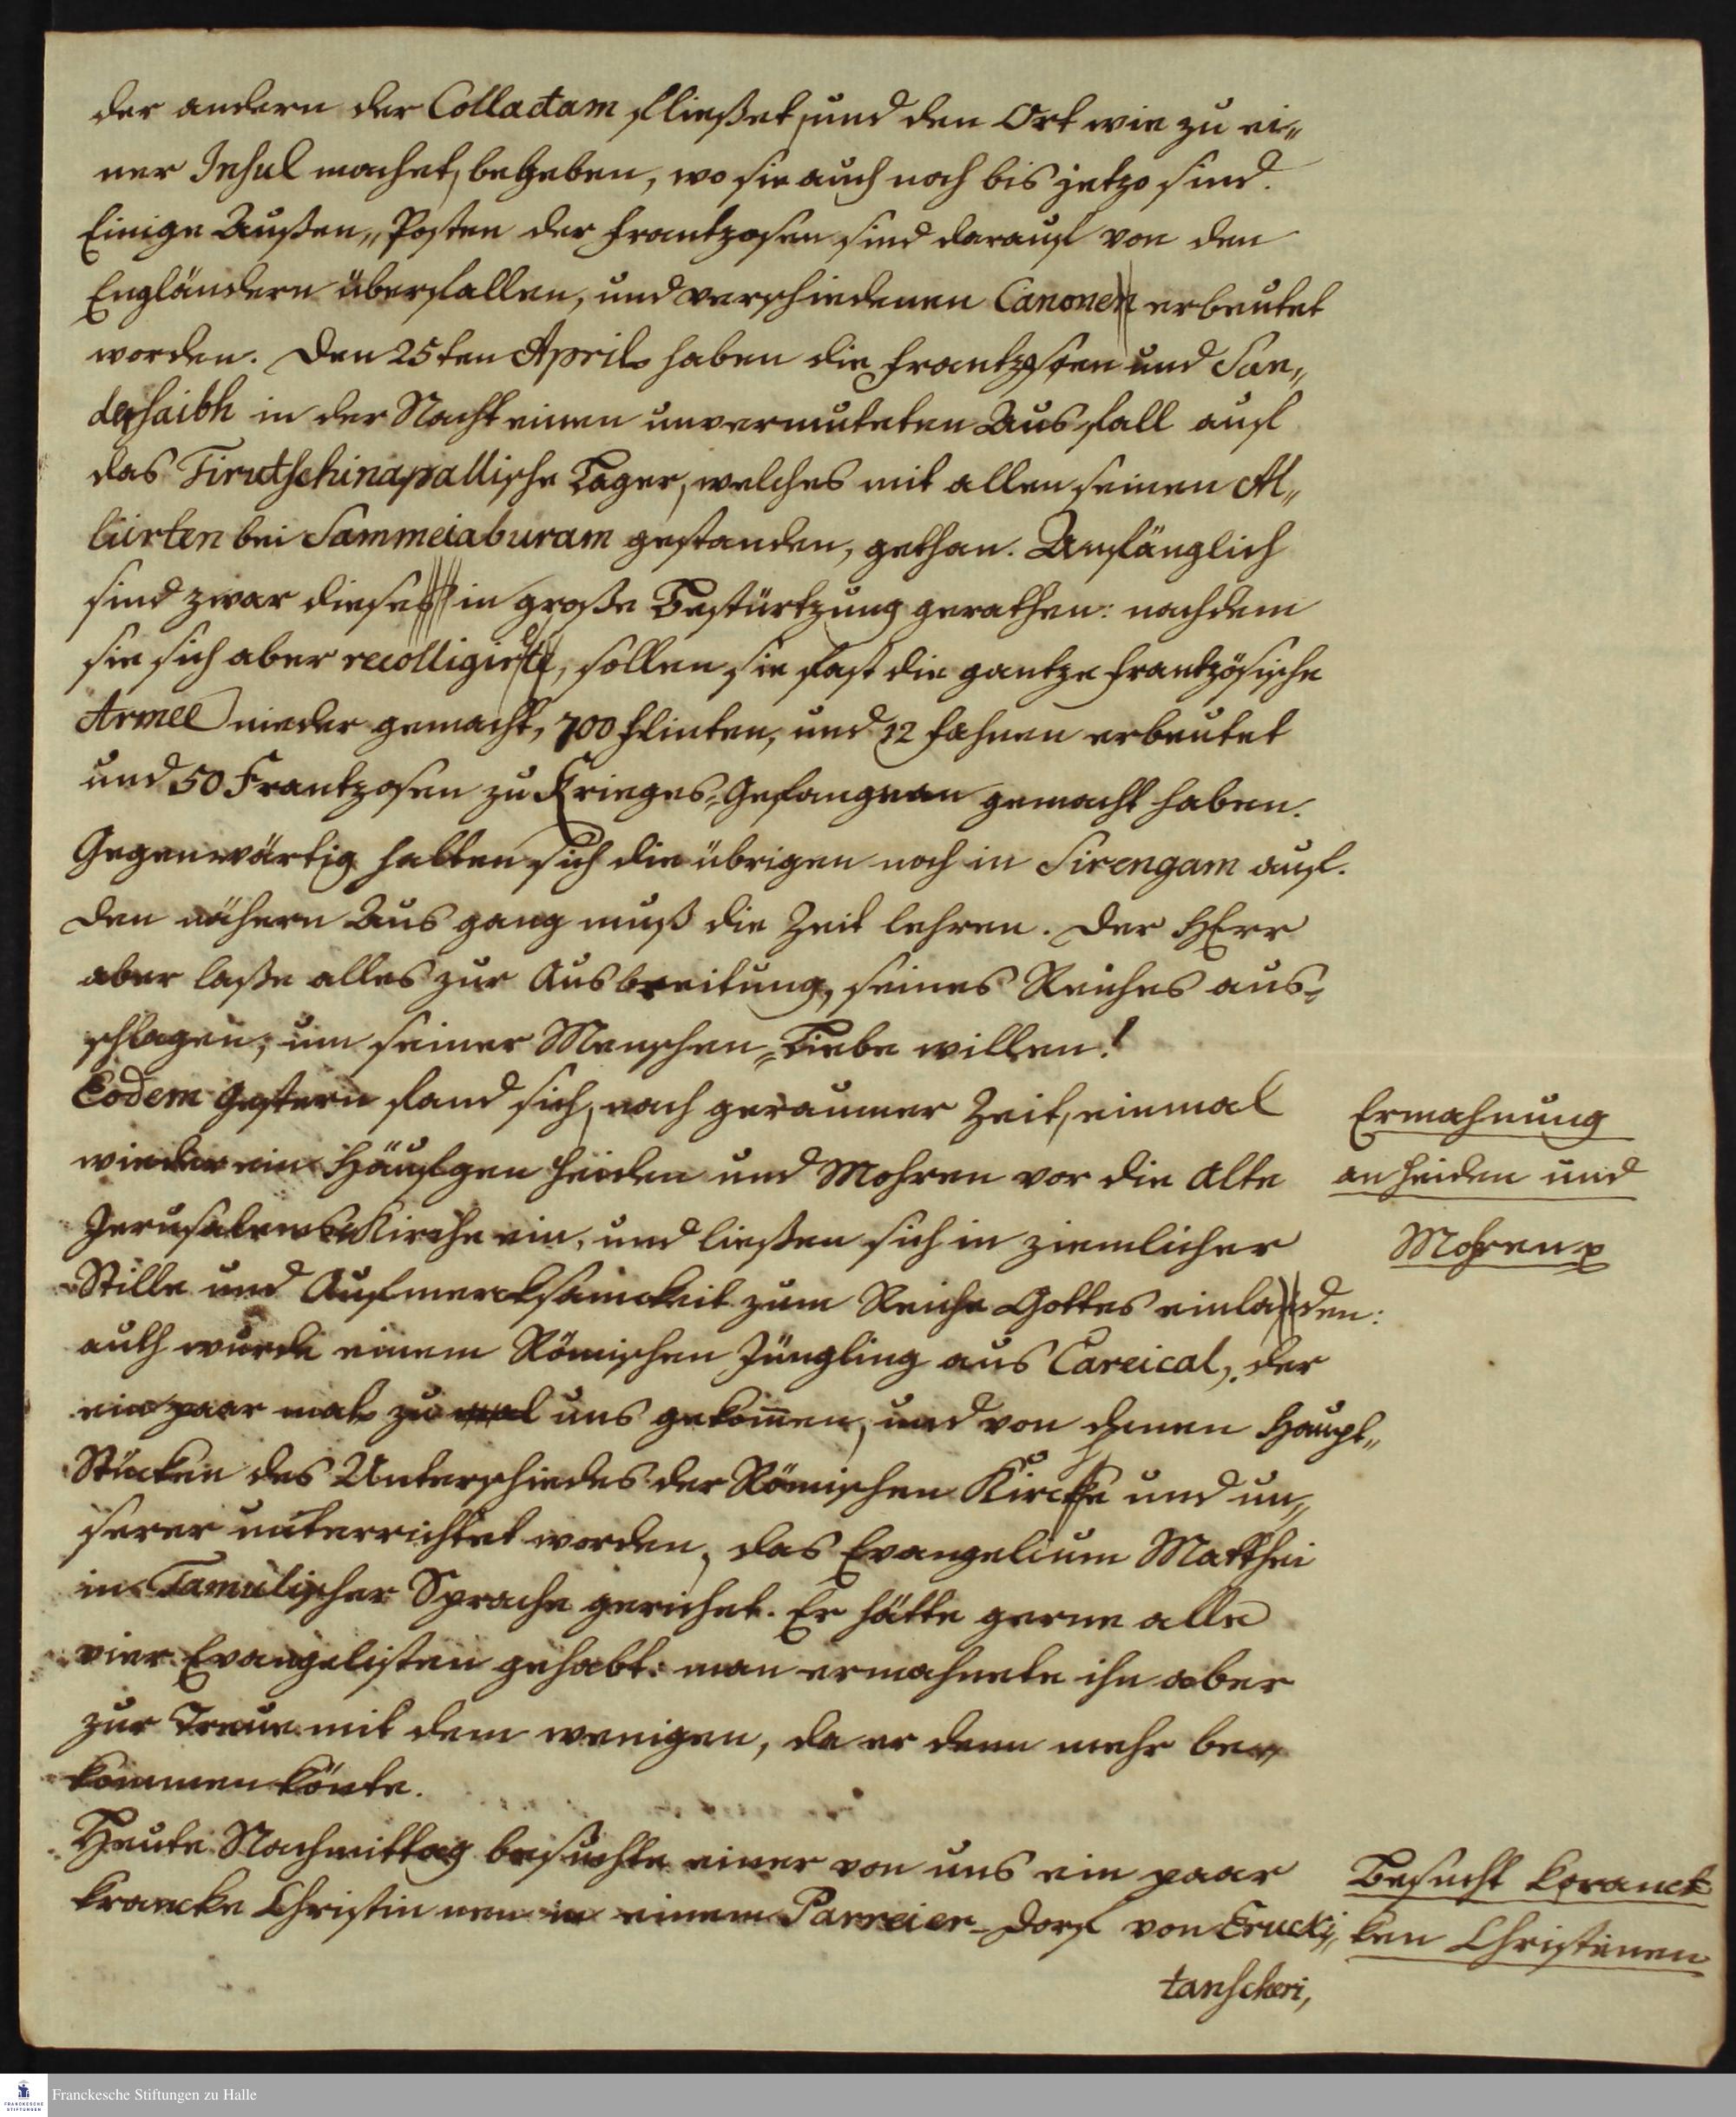 der andern der Colladam fließet, und den Ort wie zu ei„
ner Insul machet, begeben, wo sie auch noch bis jetzo sind.
Einige Außen„Posten der Frantzosen sind darauf von den
Engländern überfallen, und verschiedenen Canonen erbeutet
worden. Den 25ten April haben die Frantzosen und San„
dersaibh in der Nacht einen unvermuteten Ausfall auf
das Tirutschinapallische Lager, welches mit allen seinen Al„
liirten bei Sammeiaburam gestanden, gethan. Anfänglich
sind zwar diese in große Bestürtzung gerathen: nachdem
sie sich aber recolligirt, sollen sie fast die gantze Frantzösische
Armee nieder gemacht, 700 Flinten, und 12 Fahnen erbeutet
und 50 Frantzosen zu Krieges-Gefangnen gemacht haben.
Gegenwärtig halten sich die übrigen noch in Sirengam auf.
Den nähern Ausgang muß die Zeit lehren. Der HErr
aber laße alles zur Ausbreitung, seines Reiches aus=
schlagen; um seiner Menschen„Liebe willen!
Eodem Gestern fand sich, nach geraumer Zeit, einmal
wieder ein Häufgen Heiden und Mohren vor die Alte
Jerusalems Kirche ein, und ließen sich in ziemlicher
Stille und Aufmercksamckeit zum Reiche Gottes einladen:
auch wurde einem Römischen Jüngling aus Careical, der
ein paar mal zu uns gekom̅en, und von denen Haupt„
Stücken des Unterschiedes der Römischen Kirche und un„
serer unterrichtet worden, das Evangelium Matthei
in Tamulischer Sprache gereichet. Er hätte gerne alle
vier Evangelisten gehabt: man ermahnete ihn aber
zur Treue mit dem wenigen, da er denn mehr be„
kommen könte.
Heute Nachmittag besuchte einer von uns ein paar
krancke Christinnen in einem Parreier-Dorf von Erucki„
tanscheri,
Ermahnung
an Heiden und
Mohren
Besucht kranck
ken Christinen
Franckesche Stiftungen zu Halle
FRANCKESCHE
STIFTUNGEN